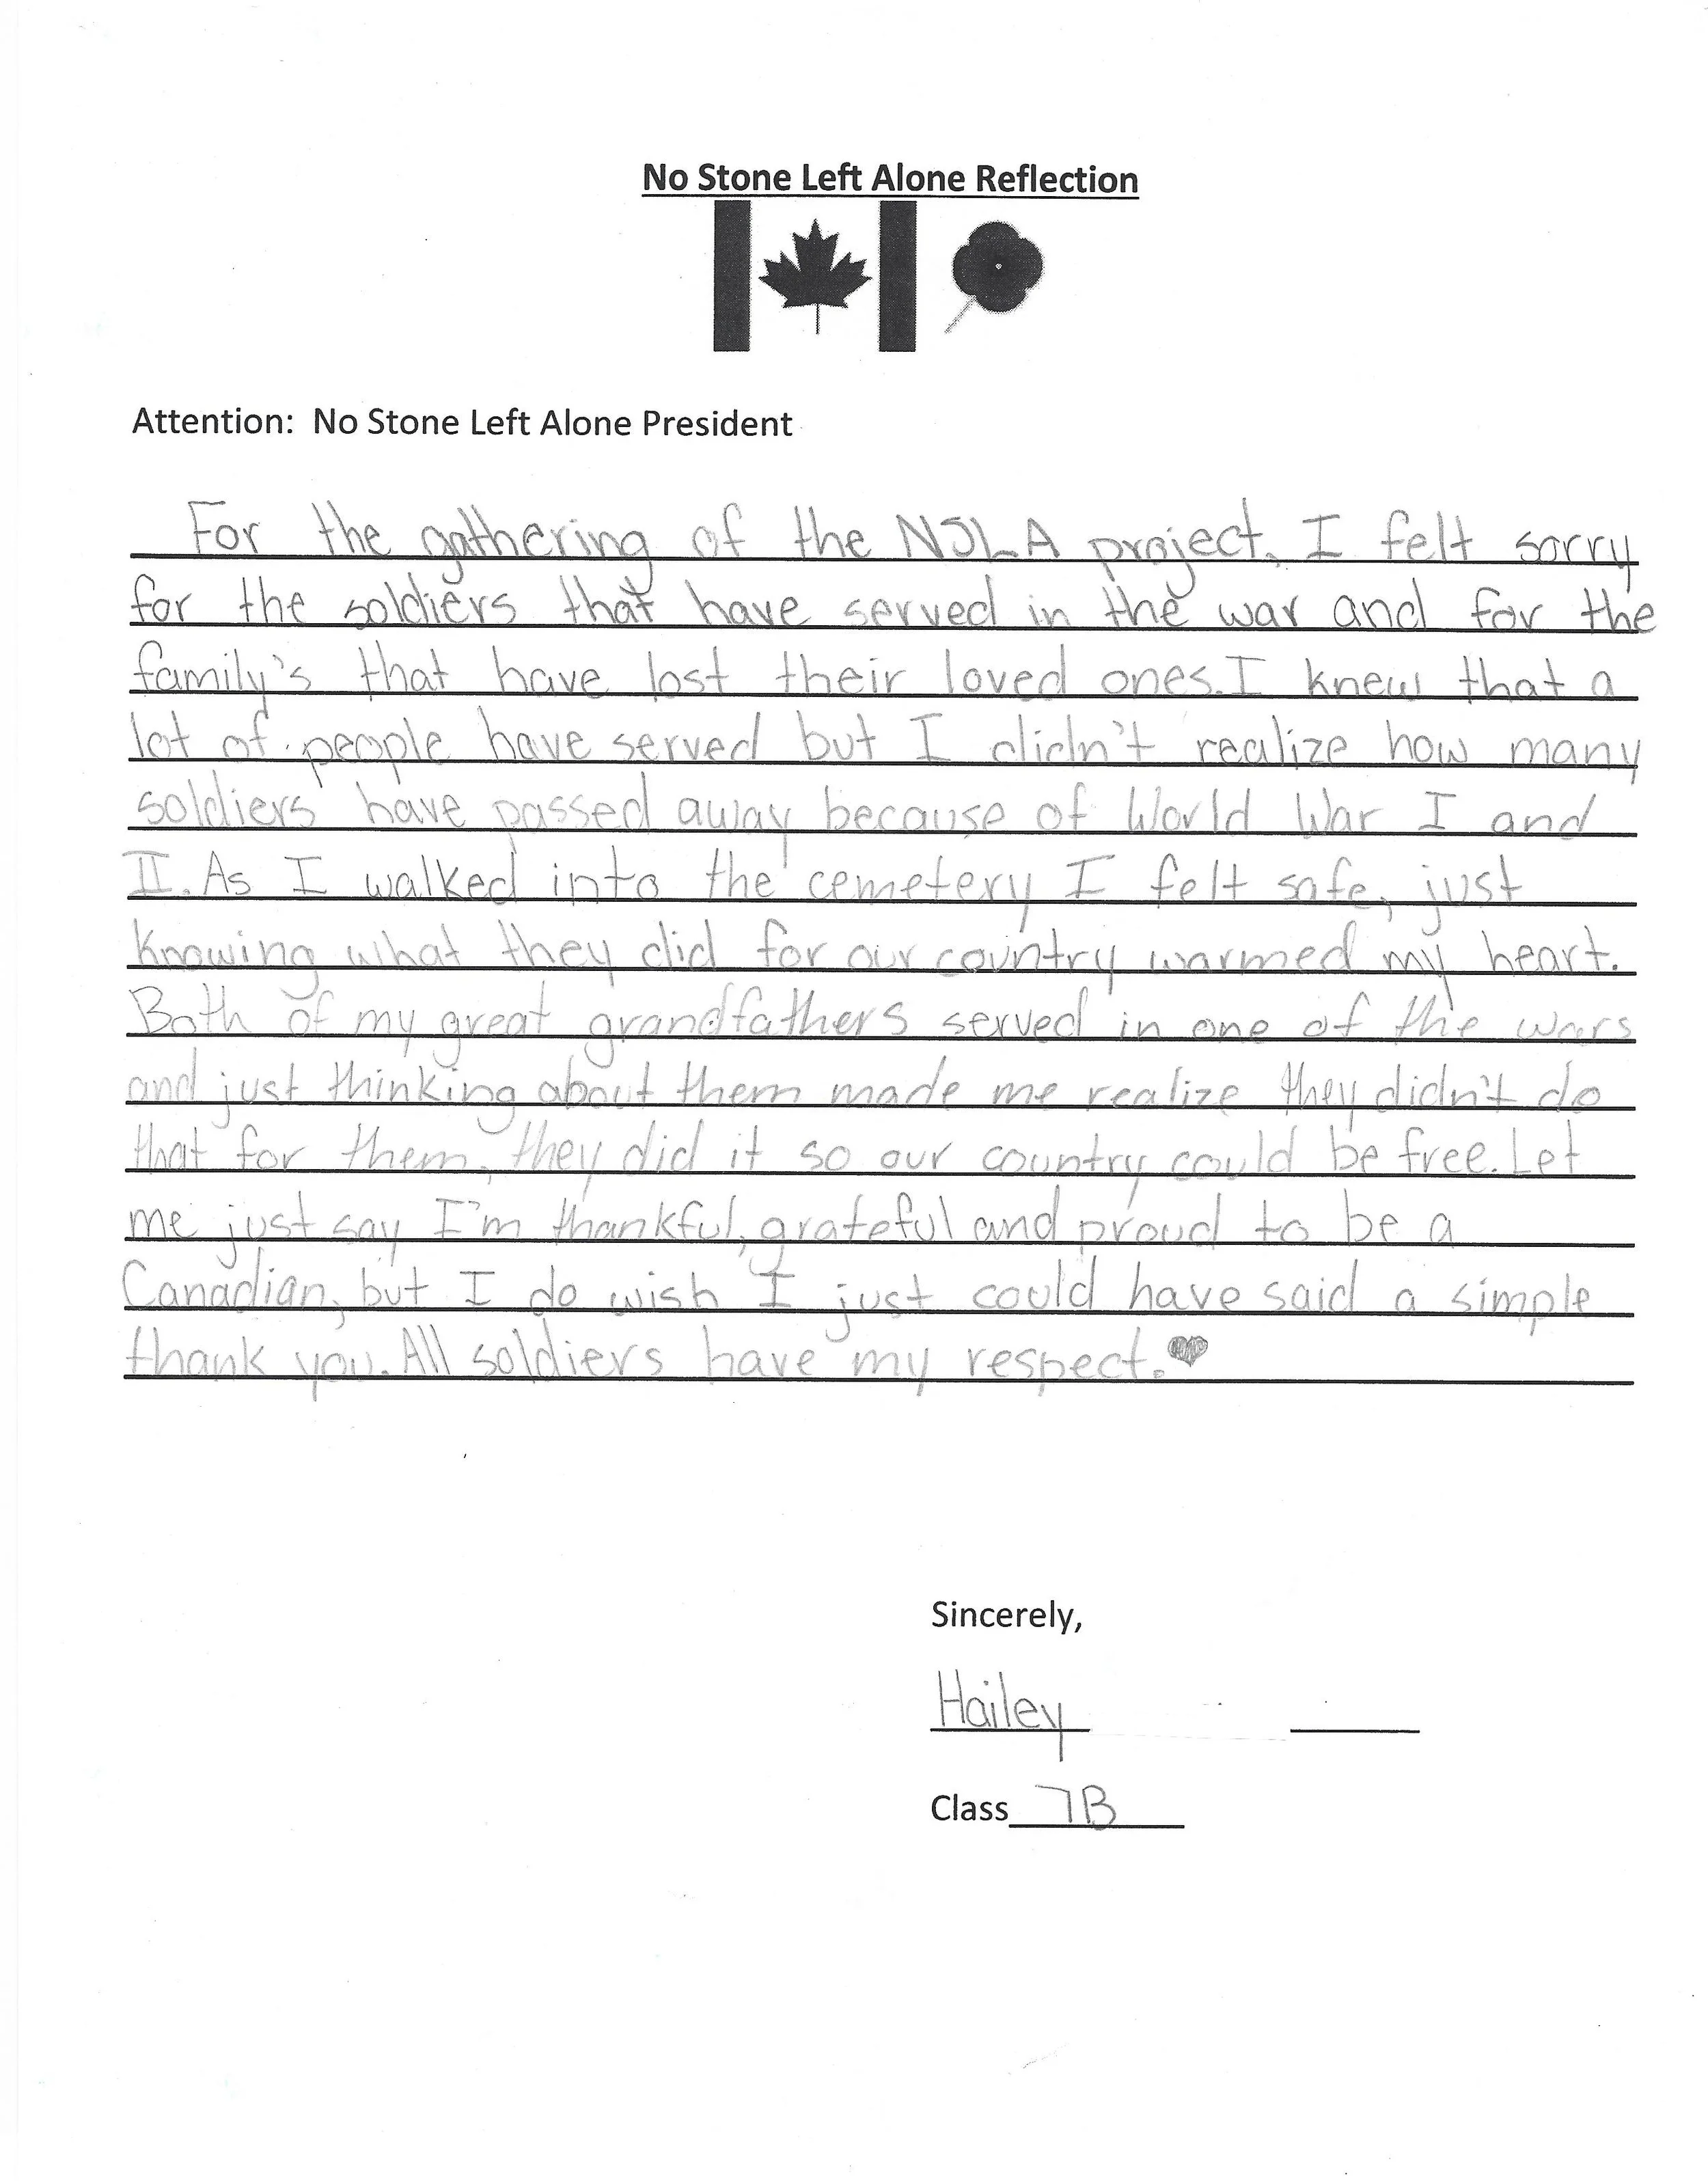 No Stone Left Alone Reflection
Attention: No Stone Left Alone President
For the gathering of the NSLA project, I felt sorry
for the soldiers that have served in the war and for the
family's that have lost their loved ones. I knew that a
lot of people have served but I didn't realize how many
soldiers have passed away because of World War I and
II. As I walked into the cemetery I felt safe, just
knowing what they did for our country warmed my heart.
Both of my great grandfathers served in one of the wars
and just thinking about them made me realize they didn't do
that for them, they did it so our country could be free. Let
me just say I'm thankful, grateful and proud to be a
Canadian, but I do wish I just could have said a simple
thank you. All soldiers have my respect.♥
Sincerely,
Hailey
Class 7B